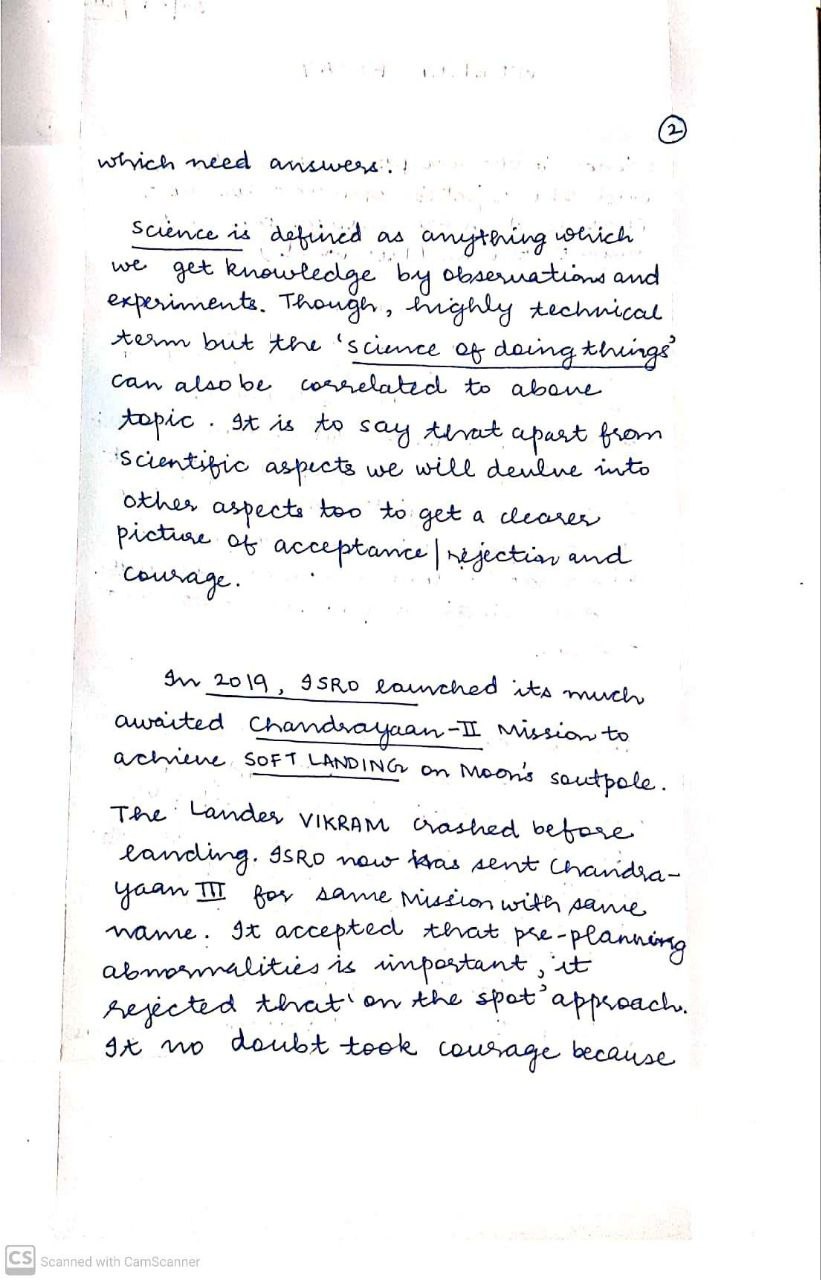 2
which need answers.
Science is defined as anything which
we get knowledge by observations and
experiments. Though, highly technical
term but the 'science of doing things'
can also be correlated to above
topic. It is to say that apart from
scientific aspects we will deulve into
other aspects too to get a clearer
picture of acceptance | rejection and
courage.
In 2019, ISRO launched its much
awaited Chandrayaan-II Mission to
achieve SOFT LANDING on Moon's soutpole.
The Lander VIKRAM crashed before
landing. ISRO now has sent Chandra-
yaan III for same Mission with same
name. It accepted that pre-planning
abnormalities is important, it
rejected that 'on the spot' approach.
It no doubt took courage because
CS Scanned with CamScanner